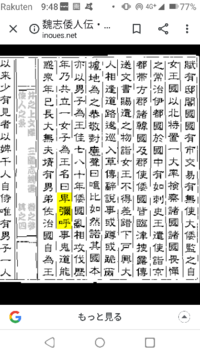 Rakuten
4G+
77%
9:48
魏志倭人伝・...
inoues.net
賦有邸閣國國有市交易有無使大倭監之自
女王國以北特置一大率檢察諸國諸國畏憚
之常治伊都國於國中有如刺史王遣使詣京
都帶方郡諸韓國及郡使倭國皆臨津搜露傳
送文書賜遺之物詣女王不得差錯下戶與大
人相逢道路逡巡入草傳辭說事或蹲或跪兩手
據地為之恭敬對應聲曰噫比如然諾其國本
亦以男子為王住七八十年倭國亂相攻伐歷
年乃共立一女子為王名曰卑彌呼事鬼道能
惑眾年已長大無夫壻有男弟佐治國自為王
以來少有見者以婢千人自侍唯有男子一人
もっと見る